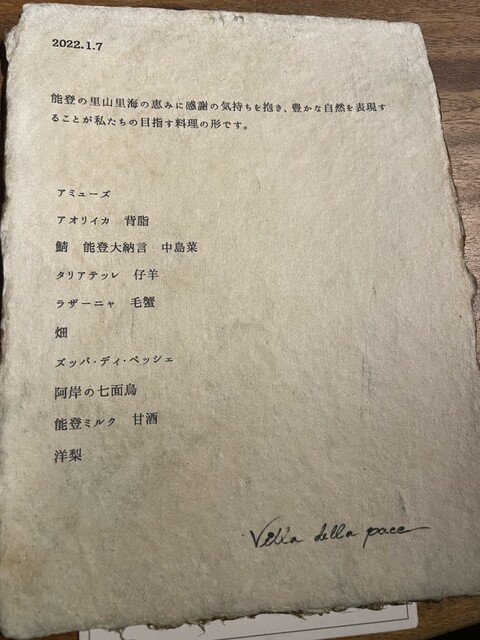 2022.1.7
能登の里山里海の恵みに感謝の気持ちを抱き、豊かな自然を表現す
ることが私たちの目指す料理の形です。
アミューズ
アオリイカ　背脂
鯖　能登大納言　中島菜
タリアテッレ　仔羊
ラザーニャ　毛蟹
畑
ズッパ・ディ・ペッシェ
阿岸の七面鳥
能登ミルク　甘酒
洋梨
Villa della pace